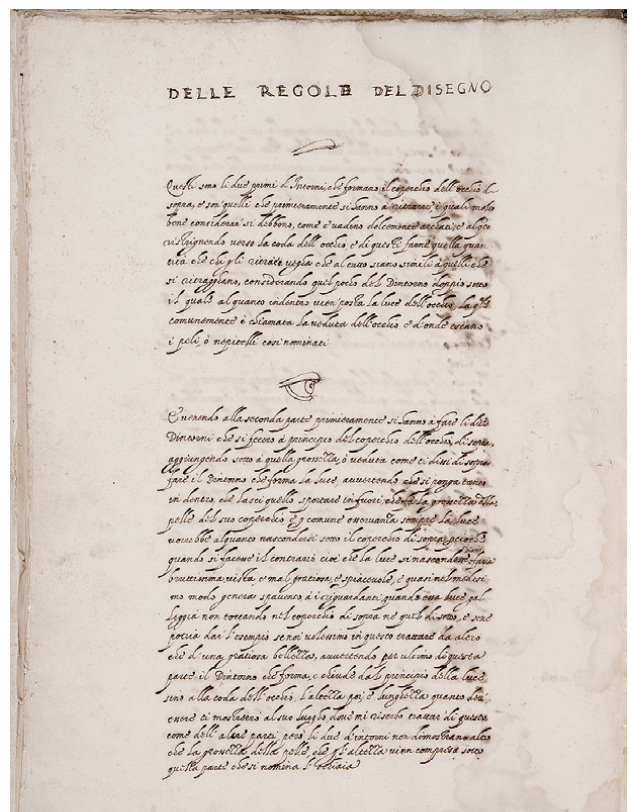 DELLE REGOLE DEL DISEGNO
Questi sono li due primi d'Intorni, che formano il coperchio dell'occhio di
sopra, e son quelli che primieramente si hanno à ritrarre, i quali molto
bene considerar si debbono, come e vadino dolcemente archati, e al qto
ristrignendo verso la coda dell'occhio, e di questi farne quella quan
tità che chi gli ritrare voglia che al tutto siano simili à quelli che
si ritraggano, considerando quel pocho del Dintorno doppio sotto
il quale alquanto indentro vien posta la luce dell'occhio. La qle
comunemente è chiamata la veduta dell'occhio e d'onde escano
i peli, ò nepitelli così nominati
Et venendo alla seconda parte primieramente si hanno a fare li due
Dintorni che si fecero à principio del coperchio dell'occhio, di sopra
aggiungendo sotto à quella grossezza, ò veduta come ti dissi di sopra
fare il Dintorno che forma la luce, avvertendo che si ponga tanto
in dentro che lasci quello sportare in fuori, che fà la grossezza della
pelle del suo coperchio e p comune osservanza sempre la luce
vorrebbe alquanto nascondersi sotto il coperchio di sopra, perche
quando si facesse il contrario cioè che la luce si nascondesse
bruttissima vista e mal gratiosa, e spiacevole, e quasi nel medesi
mo modo genera spavento à i riguardanti, quando essa luce gal
leggia non toccando nel coperchio di sopra ne quel di sotto, e sene
potria dar l'esempio se noi volessimo in questo trattare da altro
che d'una gratiosa bellezza, avvertendo per ultimo di questa
parte il Dintorno che forma, e chiude dal principio della luce
sino alla coda dell'occhio. l'altezza poi, e lunghezza quanto deve
essere ti mostrerro al suo luogho dove mi riserbo trattar di questa
come dell'altre parti però li due d'intorni non dimostran altro
che la grossezza della pelle, che p l'altezza vien compresa sotto
quella parte che si nomina l'occhiaia